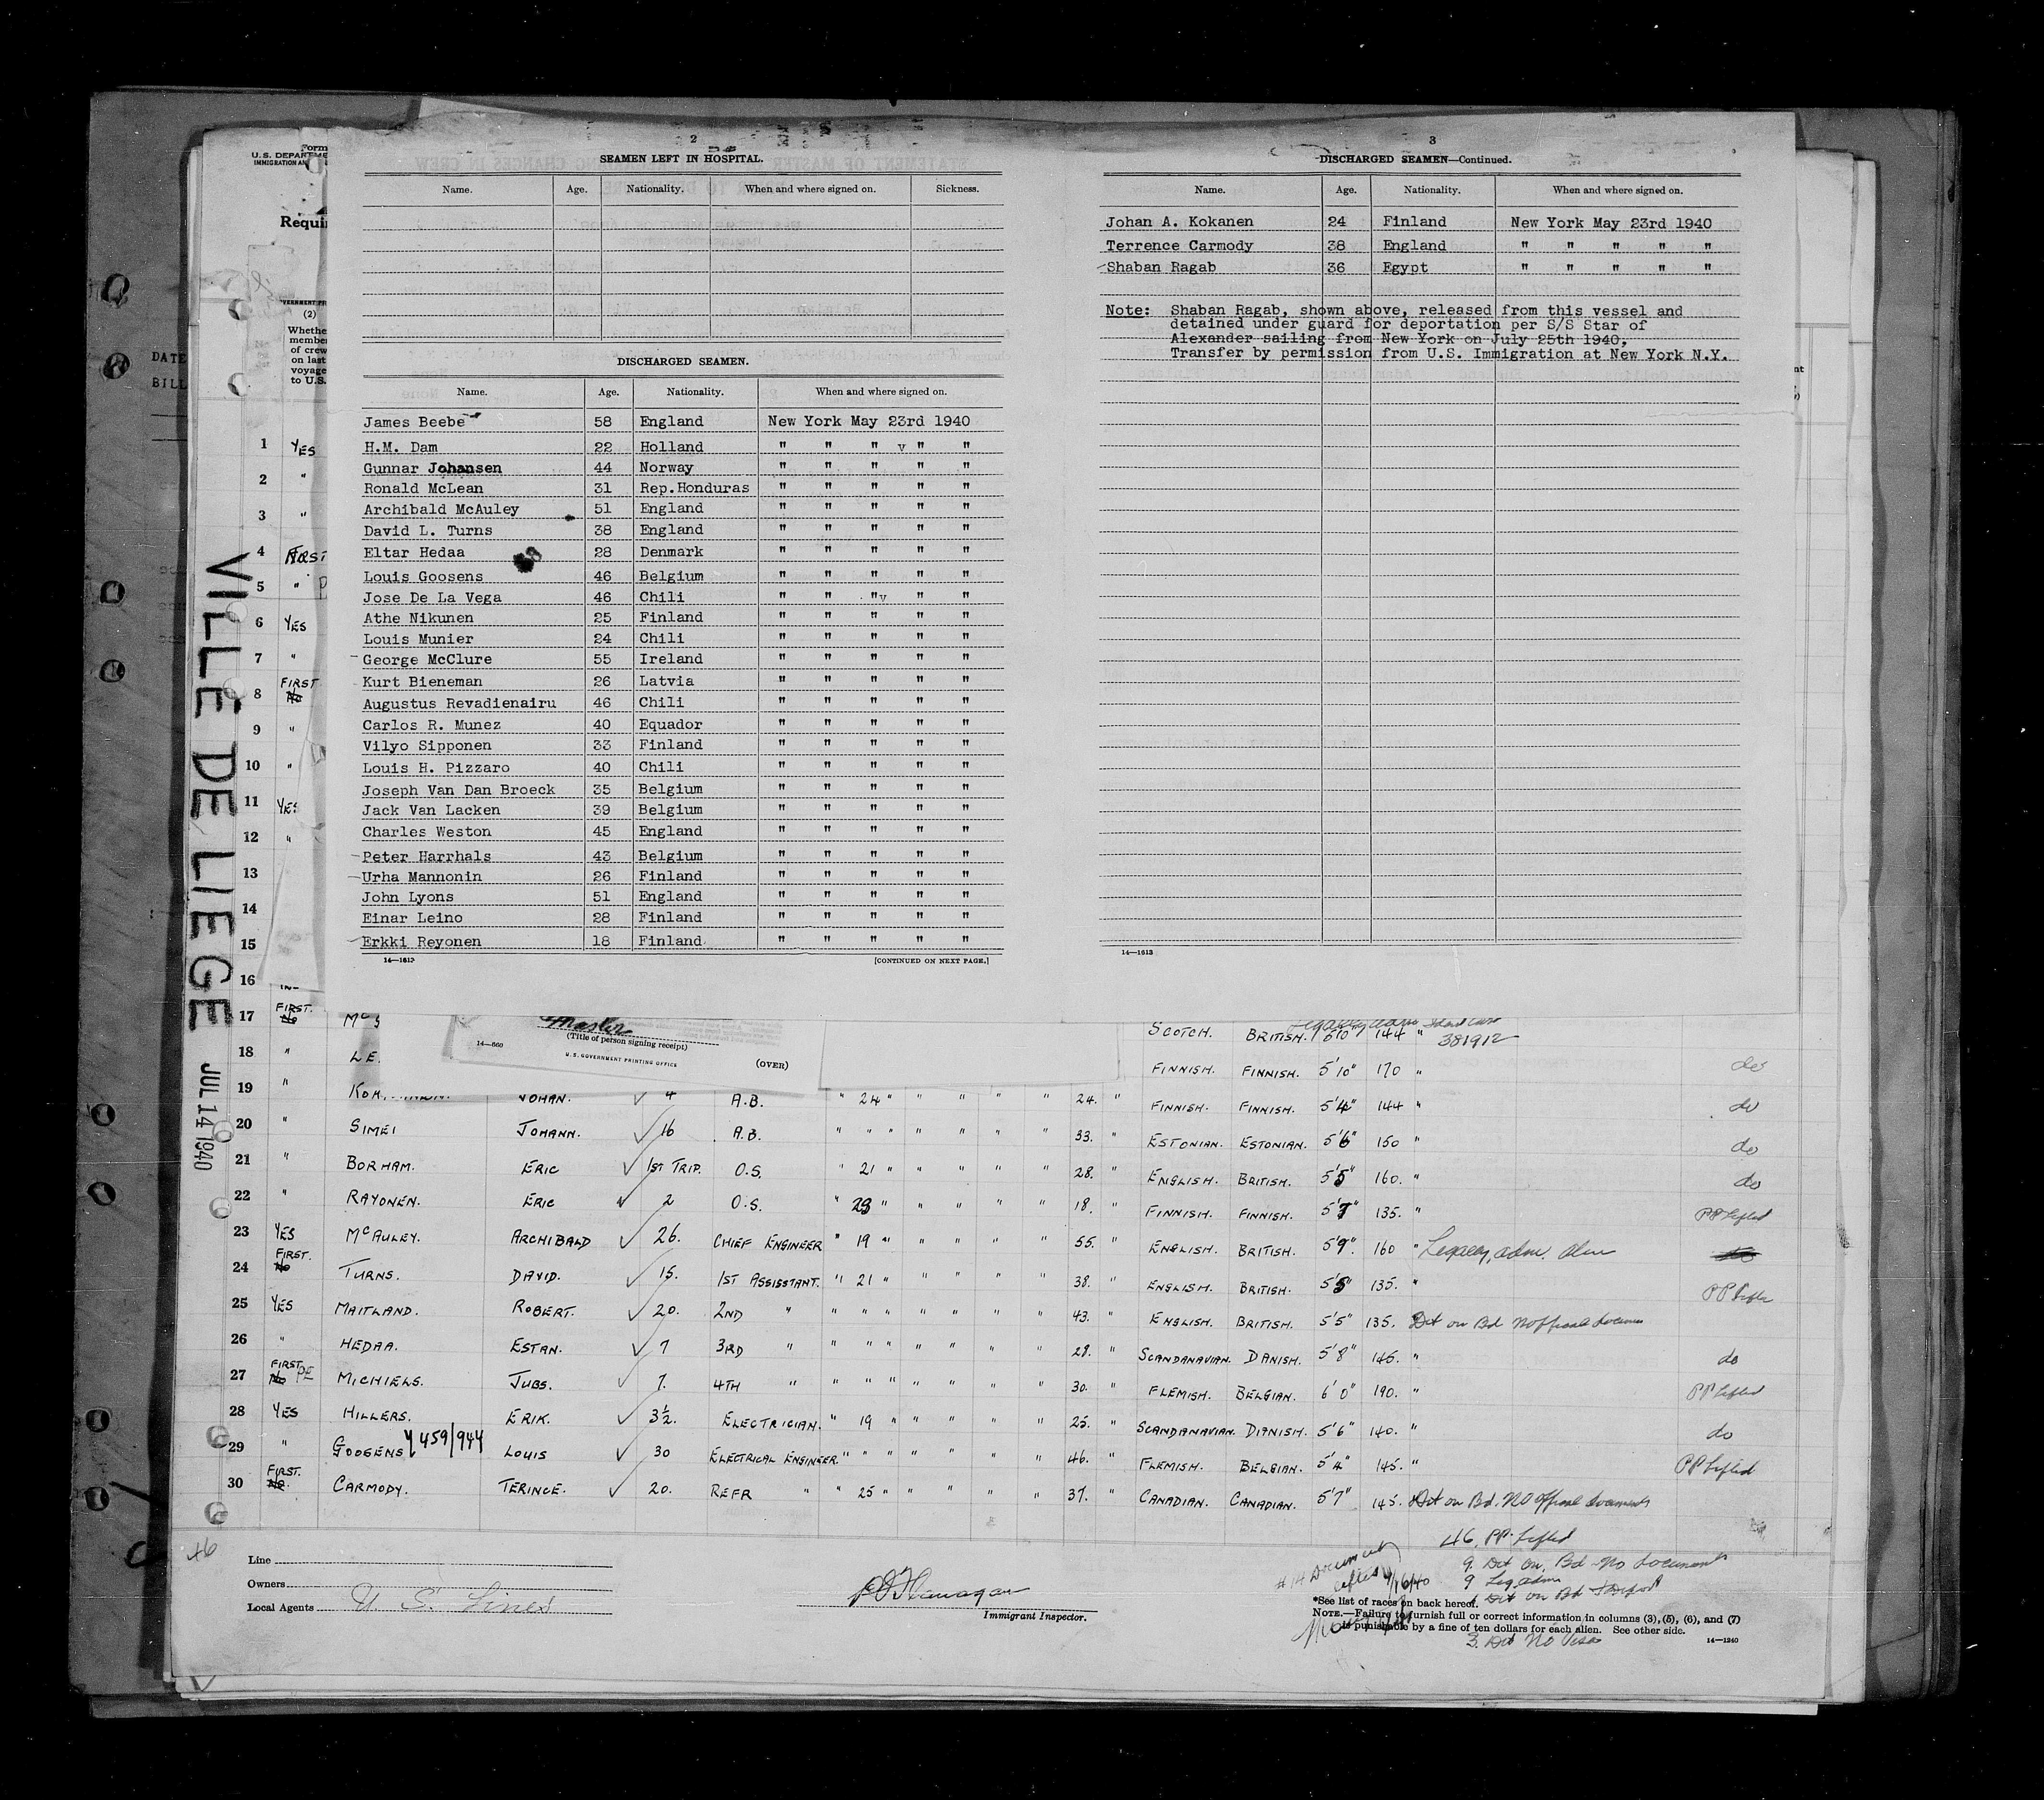 2
SEAMEN LEFT IN HOSPITAL.
Name. Age. Nationality. When and where signed on. Sickness.
DISCHARGED SEAMEN.
Name. Age. Nationality. When and where signed on.
James Beebe 58 England New York May 23rd 1940
H.M. Dam 22 Holland " " " v " "
Gunnar Johansen 44 Norway " " " " "
Ronald McLean 31 Rep.Honduras " " " " "
Archibald McAuley 51 England " " " " "
David L. Turns 38 England " " " " "
Eltar Hedaa 28 Denmark " " " " "
Louis Goosens 46 Belgium " " " " "
Jose De La Vega 46 Chili " " "v " "
Athe Nikunen 25 Finland " " " " "
Louis Munier 24 Chili " " " " "
George McClure 55 Ireland " " " " "
Kurt Bieneman 26 Latvia " " " " "
Augustus Revadienairu 46 Chili " " " " "
Carlos R. Munez 40 Equador " " " " "
Vilyo Sipponen 33 Finland " " " " "
Louis H. Pizzaro 40 Chili " " " " "
Joseph Van Dan Broeck 35 Belgium " " " " "
Jack Van Lacken 39 Belgium " " " " "
Charles Weston 45 England " " " " "
Peter Harrhals 43 Belgium " " " " "
Urha Mannonin 26 Finland " " " " "
John Lyons 51 England " " " " "
Einar Leino 28 Finland " " " " "
Erkki Reyonen 18 Finland " " " " "
14—1613 [CONTINUED ON NEXT PAGE.]
3
DISCHARGED SEAMEN—Continued.
Name. Age. Nationality. When and where signed on.
Johan A. Kokanen 24 Finland New York May 23rd 1940
Terrence Carmody 38 England " " " " "
Shaban Ragab 36 Egypt " " " " "
Note: Shaban Ragab, shown above, released from this vessel and
detained under guard for deportation per S/S Star of
Alexander sailing from New York on July 25th 1940,
Transfer by permission from U.S. Immigration at New York N.Y.
14—1613
Form
U.S. DEPARTME
IMMIGRATION AN
Requir
(2)
Whethe
member
of crew
on last
voyage
to U.S.
DATE
BILL
VILLE DE LIEGE JUL 14 1940
1 YES
2 "
3 "
4 FIRST
5 "
6 YES
7 "
8 FIRST No
9 "
10 "
11 YES
12 "
13
14
15
16
Master
(Title of person signing receipt)
14—660
U.S. GOVERNMENT PRINTING OFFICE
(OVER)
17 FIRST. No McS SCOTCH. BRITISH. 5'10" 144 " 381912
18 " LE. FINNISH. FINNISH. 5'10" 170 " do
19 " KOK JOHAN. 4 A.B. " 24 " " " " " 24. " FINNISH. FINNISH. 5'4" 144 " do
20 " SIMEI JOHANN. 16 A.B. " " " " " " " 33. " ESTONIAN. ESTONIAN. 5'6" 150 " do
21 " BORHAM. ERIC 1ST TRIP. O.S. " 21 " " " " " 28. " ENGLISH. BRITISH. 5'5" 160. " do
22 " RAYONEN. ERIC 2 O.S. " 23 " " " " " 18. " FINNISH. FINNISH. 5'7" 135. " PP Lifted
23 YES McAULEY. ARCHIBALD 26. CHIEF ENGINEER " 19 " " " " " 55. " ENGLISH. BRITISH. 5'9". 160 " Legally adm.
24 FIRST. No TURNS. DAVID. 15. 1ST ASSISSTANT. " 21 " " " " " 38. " ENGLISH. BRITISH. 5'5" 135. " PP Lifted
25 YES MAITLAND. ROBERT. 20. 2ND " " " " " " " " 43. " ENGLISH. BRITISH. 5'5" 135. Det on Bd No official documents
26 " HEDAA. ESTAN. 7 3RD " " " " " " " " 28. " SCANDANAVIAN. DANISH. 5'8" 145. " do
27 FIRST No PE MICHIELS. JUBS. 7. 4TH " " " " " " " " 30. " FLEMISH. BELGIAN. 6'0" 190. " PP Lifted
28 YES HILLERS. ERIK. 3½. ELECTRICIAN. " 19 " " " " " 25. " SCANDANAVIAN. DANISH. 5'6" 140. " do
29 " GOOSENS 459/944 LOUIS 30 ELECTRICAL ENGINEER " " " " " " " 46. " FLEMISH. BELGIAN. 5'4" 145. " PP Lifted
30 FIRST. No. CARMODY. TERINCE. 20. REFR " " 25 " " " " " 37. " CANADIAN. CANADIAN. 5'7" 145. Det on Bd. No official documents
46
Line
Owners
Local Agents U S. Lines
Immigrant Inspector.
#14 Documents
lifted 7/16/40
46 PP Lifted
9 Det On Bd No Documents
9 Leg adm
1 Det on Bd & Deport
3 Det No Visas
*See list of races on back hereof.
NOTE.—Failure to furnish full or correct information in columns (3), (5), (6), and (7)
is punishable by a fine of ten dollars for each alien. See other side.
14—1240